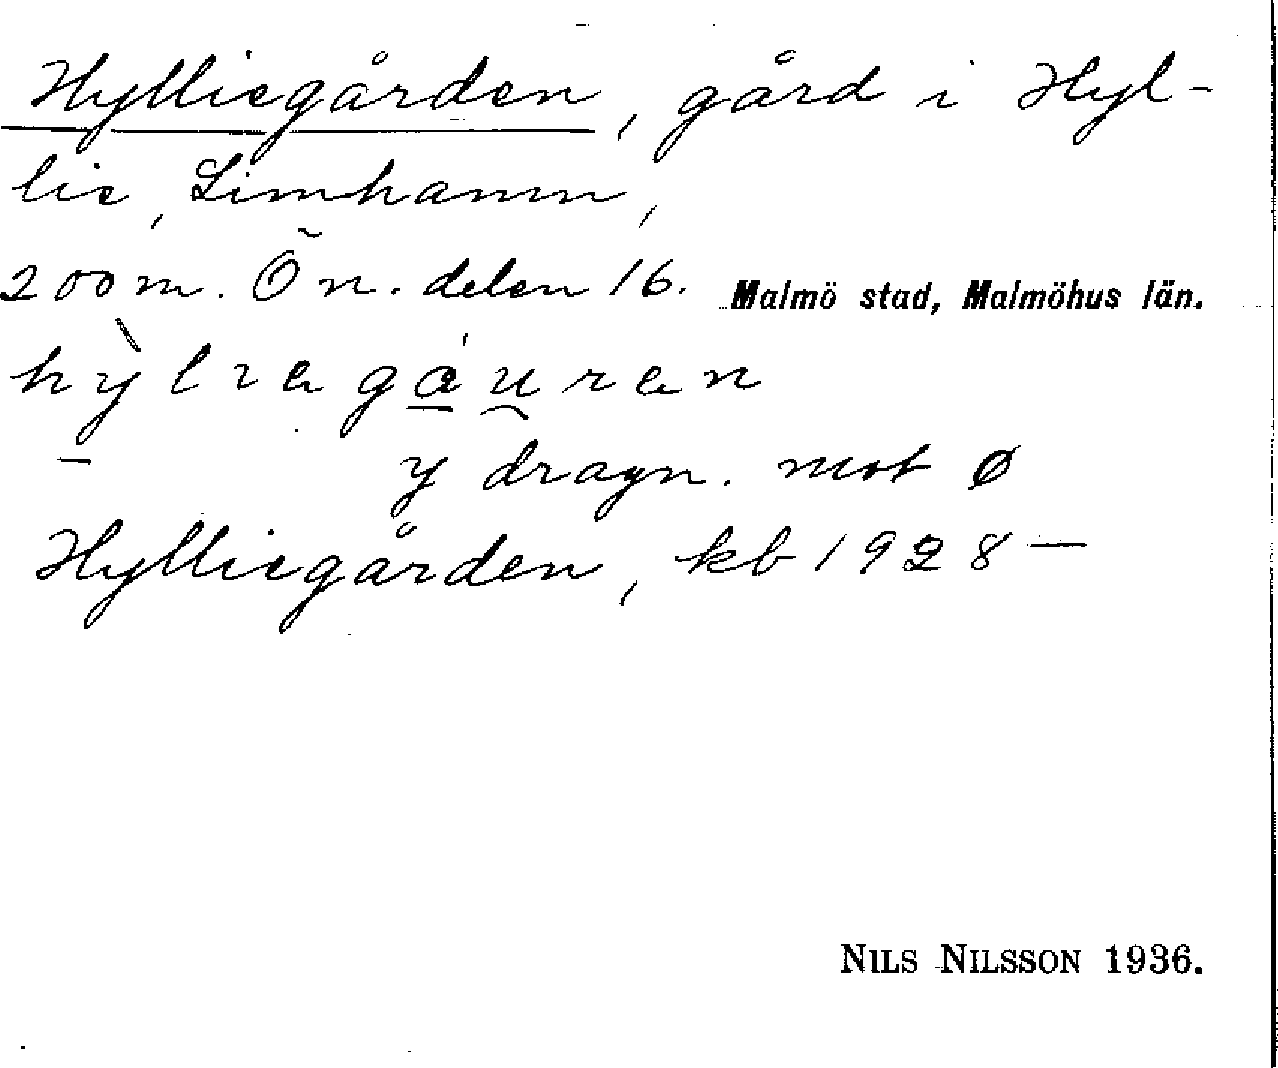 Hylliegården, gård i Hyl-
lie, Limhamn,
200 m. Ö n. delen 16. Malmö stad, Malmöhus län.
y dragn. mot ø
Hylliegården, kb 1928—
NILS NILSSON 1936.